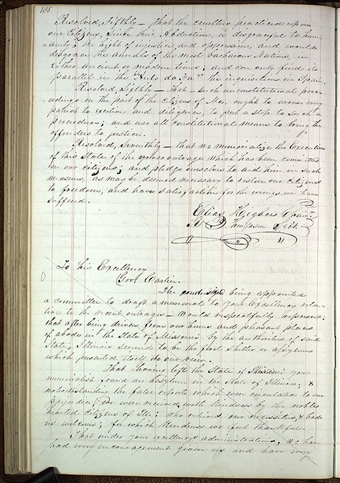 Resolved, Fifthly — That the cruelties practised upon
our Citizens, since their abduction, is disgraceful to hum-
anity; the height of injustice, and oppression, and would
disgrace the annals of the most barbarous Nations, in
either ancient or modern times; and can only find its
parallel in the "Auto da Fa" the inquisition in Spain
Resolved, Sixthly — that such unconstitutional proc-
eedings on the part of the Citizens of Mo. ought to arouse every
patriot to exertion and diligence, to put a stop to such a
procedure; and use all constitutional means to bring the
offenders to justice.
Resolved, Seventhly — that we memorialize the Executive
of this State, of the gross outrage which has been committed
on our citizens; and pledge ourselves to aid him in such
measures, as may be deemed necessary to restore our citizens
to freedom, and have satisfaction for the wrongs we have
suffered.
Elias Higbee
To His Excellency
Gov. Carlin.
The undersigned being appointed
a committee to draft a memorial to your Excellency relat-
ive to the recent outrages — would respectfully represent;
that after being driven from our homes and pleasant places
of abode in the State of Missouri by the authorities of said
State, Illinois seemed to be the first shelter or asylum
which presented itself to our view.
That having left the State of your
memorialists found an asylum in the State of Illinois; &
notwithstanding the false reports which were circulated to our
prejudice, we were received with kindness by the noble
hearted Citizens of Ill: who relieved our necessities, & bade
us welcome; for which kindness we feel thankful.
That under your excellency's administration, we have
had every encouragement given us and have every